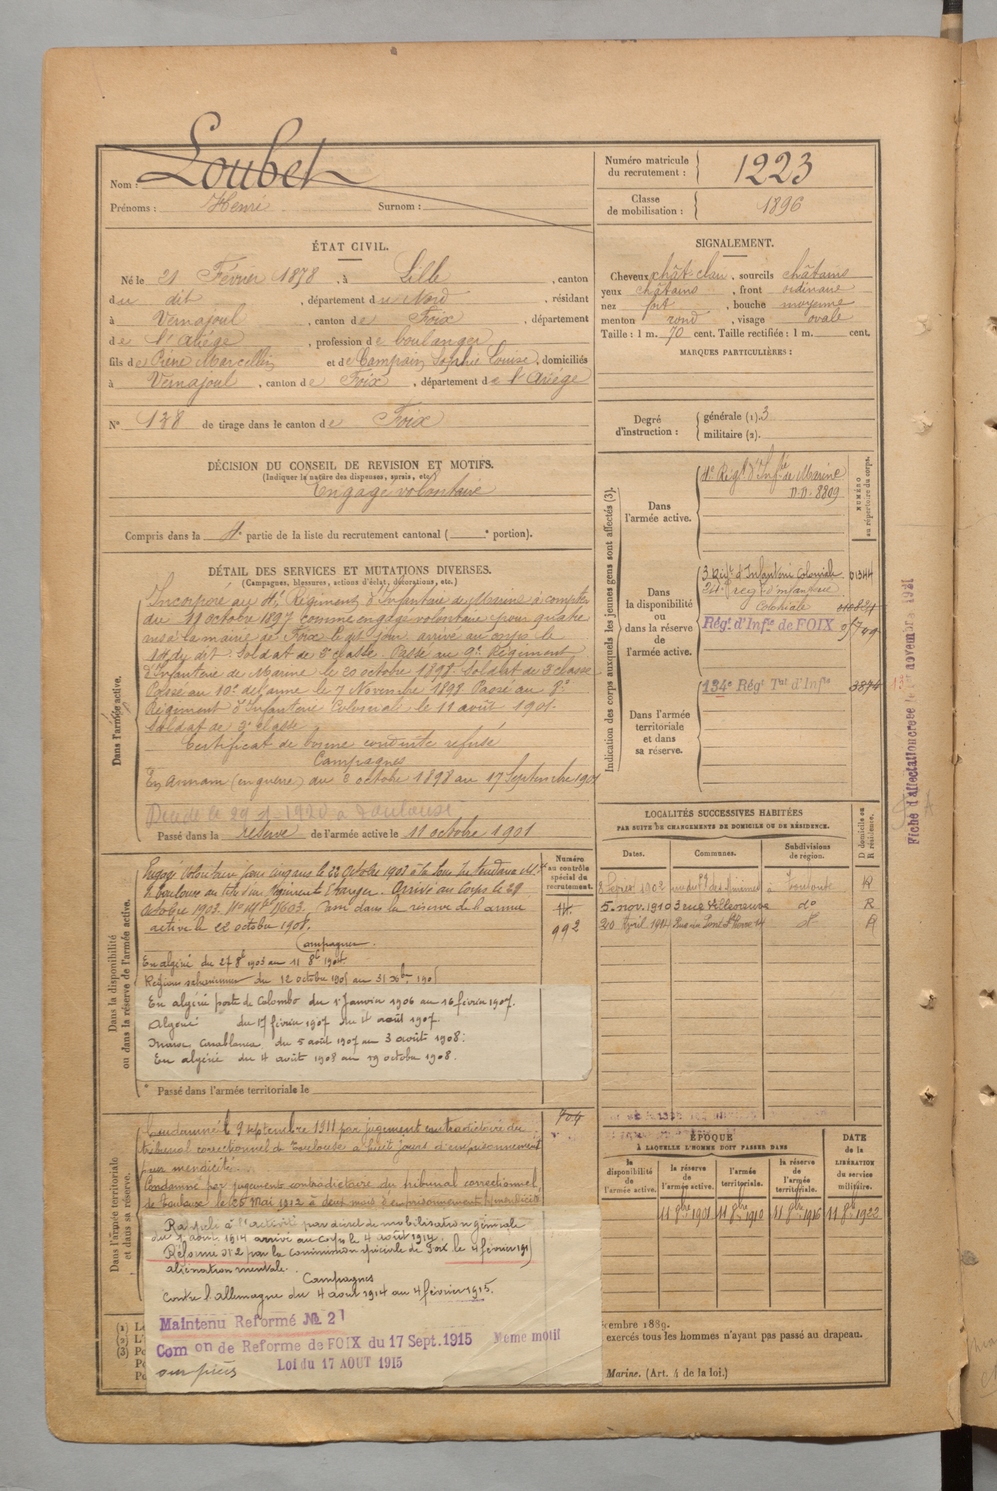 Nom : Loubet
Prénoms : Henri Surnom :
Numéro matricule du recrutement : 1223
Classe de mobilisation : 1896
ÉTAT CIVIL.
Né le 21 Février 1878, à Lille, canton
du dit, département du Nord, résidant
à Vernajoul, canton de Foix, département
de l'Ariège, profession de boulanger
fils de Pierre Marcellin et de Campain Sophie Louise, domiciliés
à Vernajoul, canton de Foix, département de l'Ariège
N° 128 de tirage dans le canton de Foix
SIGNALEMENT.
Cheveux chât-clair, sourcils châtains
yeux châtains, front ordinaire
nez fort, bouche moyenne
menton rond, visage ovale
Taille : 1 m. 70 cent. Taille rectifiée : 1 m. cent.
MARQUES PARTICULIÈRES :
Degré d'instruction : générale (1). 3
militaire (2).
DÉCISION DU CONSEIL DE REVISION ET MOTIFS.
(Indiquer la nature des dispenses, sursis, etc.)
Engagé volontaire
Compris dans la 4e partie de la liste du recrutement cantonal ( e portion).
DÉTAIL DES SERVICES ET MUTATIONS DIVERSES.
(Campagnes, blessures, actions d'éclat, décorations, etc.)
Dans l'armée active.
Incorporé au 4e Régiment d'Infanterie de Marine à compter
du 11 octobre 1897 comme engagé volontaire pour quatre
ans à la mairie de Foix le dit jour arrivé au corps le
14 dy dit. Soldat de 2e classe. Passé au 9e Régiment
d'Infanterie de Marine le 20 octobre 1898 Soldat de 2e classe
Passé au 10e de l'arme le 7 Novembre 1899 Passé au 8e
Régiment d'Infanterie Coloniale le 11 août 1901.
Soldat de 2e classe
Certificat de bonne conduite refusé
Campagnes
En Annam (en guerre) du octobre 1898 au 17 Septembre 1901
Décédé le 29 1920 à Toulouse
Passé dans la réserve de l'armée active le 11 octobre 1901
Indication des corps auxquels les jeunes gens sont affectés (3).
NUMÉRO au répertoire du corps.
Dans l'armée active.
4e Régt d'Infie de Marine
8809
Dans la disponibilité ou dans la réserve de l'armée active.
3e Régt d'Infanterie Coloniale 01344
regt d'infanterie
Coloniale
Régt d'Infie de FOIX
Dans l'armée territoriale et dans sa réserve.
134e Régt Tal d'Infie 3874
Fiche d'affectation créée le 1er novembre 1931
Dans la disponibilité ou dans la réserve de l'armée active.
Numéro au contrôle spécial du recrutement.
992
Engagé Volontaire pour cinq ans le 22 Octobre 1903 à la Sous Intendance Mre
de Toulouse au titre d'un Régiment Etranger. Arrivé au Corps le 29
Octobre 1903. No Mle 11603. Passé dans la réserve de l'armée
active le 22 octobre 1908.
Campagnes.
En Algérie du 27 8bre 1903 au 11 8bre 1905
Régions sahariennes du 12 octobre 1905 au 31 Xbre 1905
En algérie poste de Colomb du 1er Janvier 1906 au 16 février 1907.
Algérie du 17 février 1907 au 4 août 1907.
Maroc, Casablanca du 5 août 1907 au 3 août 1908.
En algérie du 4 août 1908 au 19 octobre 1908.
* Passé dans l'armée territoriale le
LOCALITÉS SUCCESSIVES HABITÉES
PAR SUITE DE CHANGEMENTS DE DOMICILE OU DE RÉSIDENCE.
Dates. Communes. Subdivisions de région. D domicile ou R résidence.
8 Février 1902 des Minimes à Toulouse R
5 nov. 1910 3 rue Villeneuve do R
20 Avril 1914 Rue du Pont St Pierre 24 do R
Dans l'armée territoriale et dans sa réserve.
704
Condamné le 9 septembre 1911 par jugement contradictoire du
tribunal correctionnel de Toulouse à huit jours d'emprisonnement
pour mendicité.
Condamné par jugement contradictoire du tribunal correctionnel
de Toulouse le 25 Mai 1912 à deux mois d'emprisonnement p. mendicité
Rappelé à l'activité par décret de mobilisation générale
du 1er août 1914 arrivé au corps le 4 août 1914.
Réformé no 2 par la commission spéciale de Foix le 4 février 191
aliénation mentale.
Campagnes
Contre l'allemagne du 4 août 1914 au 4 février 1915.
Maintenu Reformé No 2
Com on de Reforme de FOIX du 17 Sept. 1915 Meme motif
Loi du 17 AOUT 1915
sur pièces
ÉPOQUE
À LAQUELLE L'HOMME DOIT PASSER DANS
la disponibilité de l'armée active. la réserve de l'armée active. l'armée territoriale. la réserve de l'armée territoriale.
DATE de la LIBÉRATION du service militaire.
11 8bre 1901 11 8bre 1910 11 8bre 1916 11 8bre 1922
(1)
(2)
(3)
cembre 1889.
exercés tous les hommes n'ayant pas passé au drapeau.
Marine. (Art. 4 de la loi.)